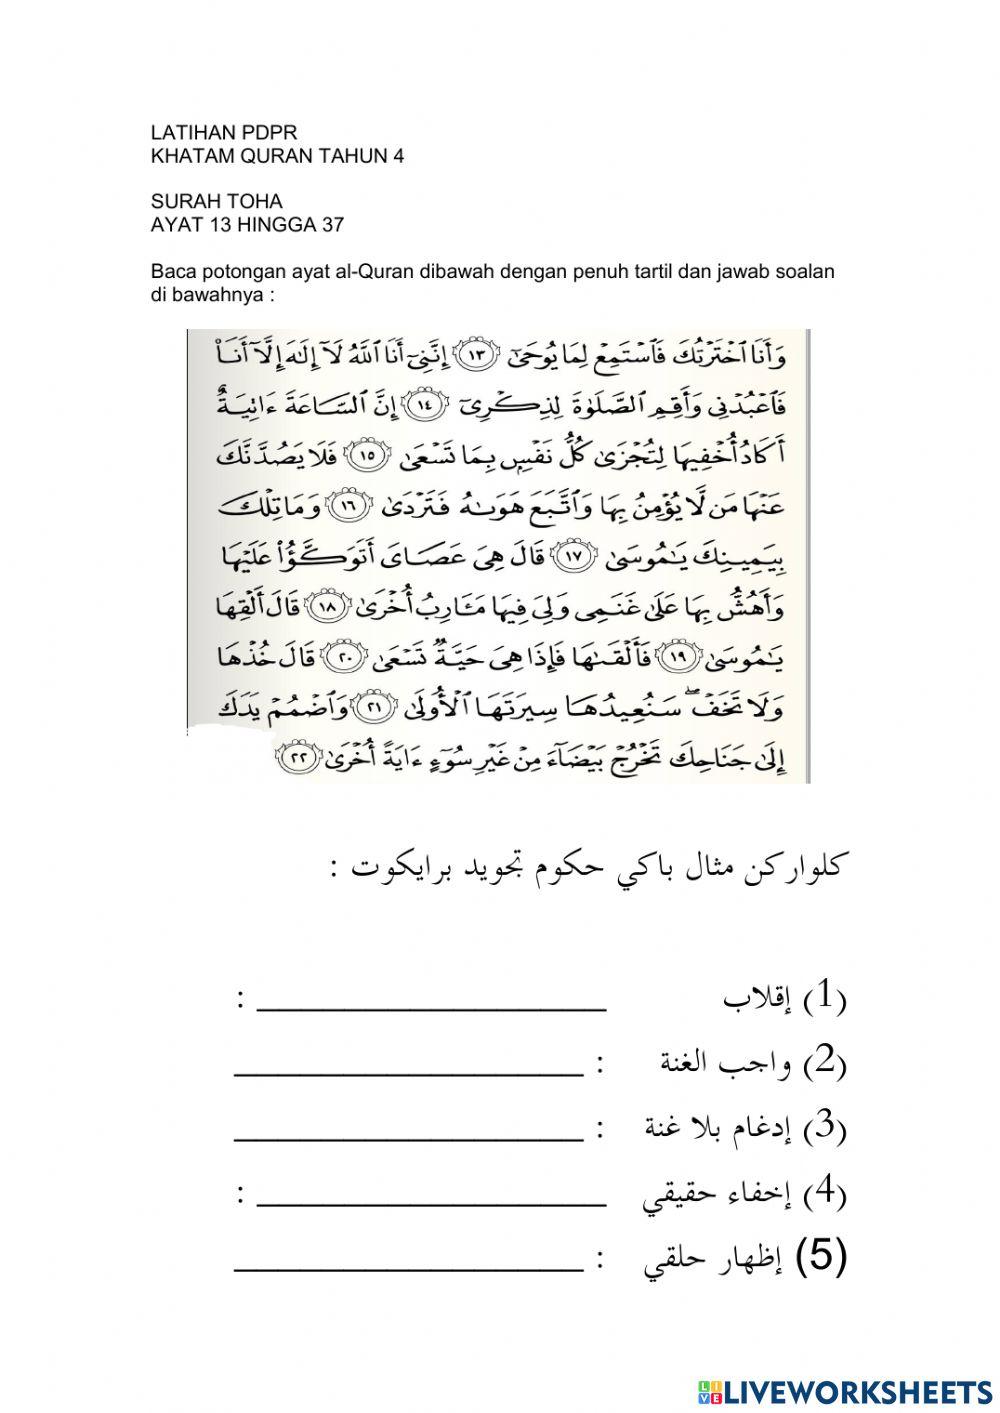 LATIHAN PDPR
KHATAM QURAN TAHUN 4
SURAH TOHA
AYAT 13 HINGGA 37
Baca potongan ayat al-Quran dibawah dengan penuh tartil dan jawab soalan
di bawahnya :
وَأَنَا ٱخْتَرْتُكَ فَٱسْتَمِعْ لِمَا يُوحَىٰٓ ١٣ إِنَّنِىٓ أَنَا ٱللَّهُ لَآ إِلَٰهَ إِلَّآ أَنَا۠
فَٱعْبُدْنِى وَأَقِمِ ٱلصَّلَوٰةَ لِذِكْرِىٓ ١٤ إِنَّ ٱلسَّاعَةَ ءَاتِيَةٌ
أَكَادُ أُخْفِيهَا لِتُجْزَىٰ كُلُّ نَفْسٍۭ بِمَا تَسْعَىٰ ١٥ فَلَا يَصُدَّنَّكَ
عَنْهَا مَن لَّا يُؤْمِنُ بِهَا وَٱتَّبَعَ هَوَىٰهُ فَتَرْدَىٰ ١٦ وَمَا تِلْكَ
بِيَمِينِكَ يَٰمُوسَىٰ ١٧ قَالَ هِىَ عَصَاىَ أَتَوَكَّؤُا۟ عَلَيْهَا
وَأَهُشُّ بِهَا عَلَىٰ غَنَمِى وَلِىَ فِيهَا مَـَٔارِبُ أُخْرَىٰ ١٨ قَالَ أَلْقِهَا
يَٰمُوسَىٰ ١٩ فَأَلْقَىٰهَا فَإِذَا هِىَ حَيَّةٌ تَسْعَىٰ ٢٠ قَالَ خُذْهَا
وَلَا تَخَفْ ۖ سَنُعِيدُهَا سِيرَتَهَا ٱلْأُولَىٰ ٢١ وَٱضْمُمْ يَدَكَ
إِلَىٰ جَنَاحِكَ تَخْرُجْ بَيْضَآءَ مِنْ غَيْرِ سُوٓءٍ ءَايَةً أُخْرَىٰ ٢٢
كلواركن مثال باکي حكوم تجويد برايكوت :
(1) إقلاب ________________ :
(2) واجب الغنة : ________________
(3) إدغام بلا غنة : ________________
(4) إخفاء حقيقي ________________ :
(5) إظهار حلقي : ________________
LIVEWORKSHEETS